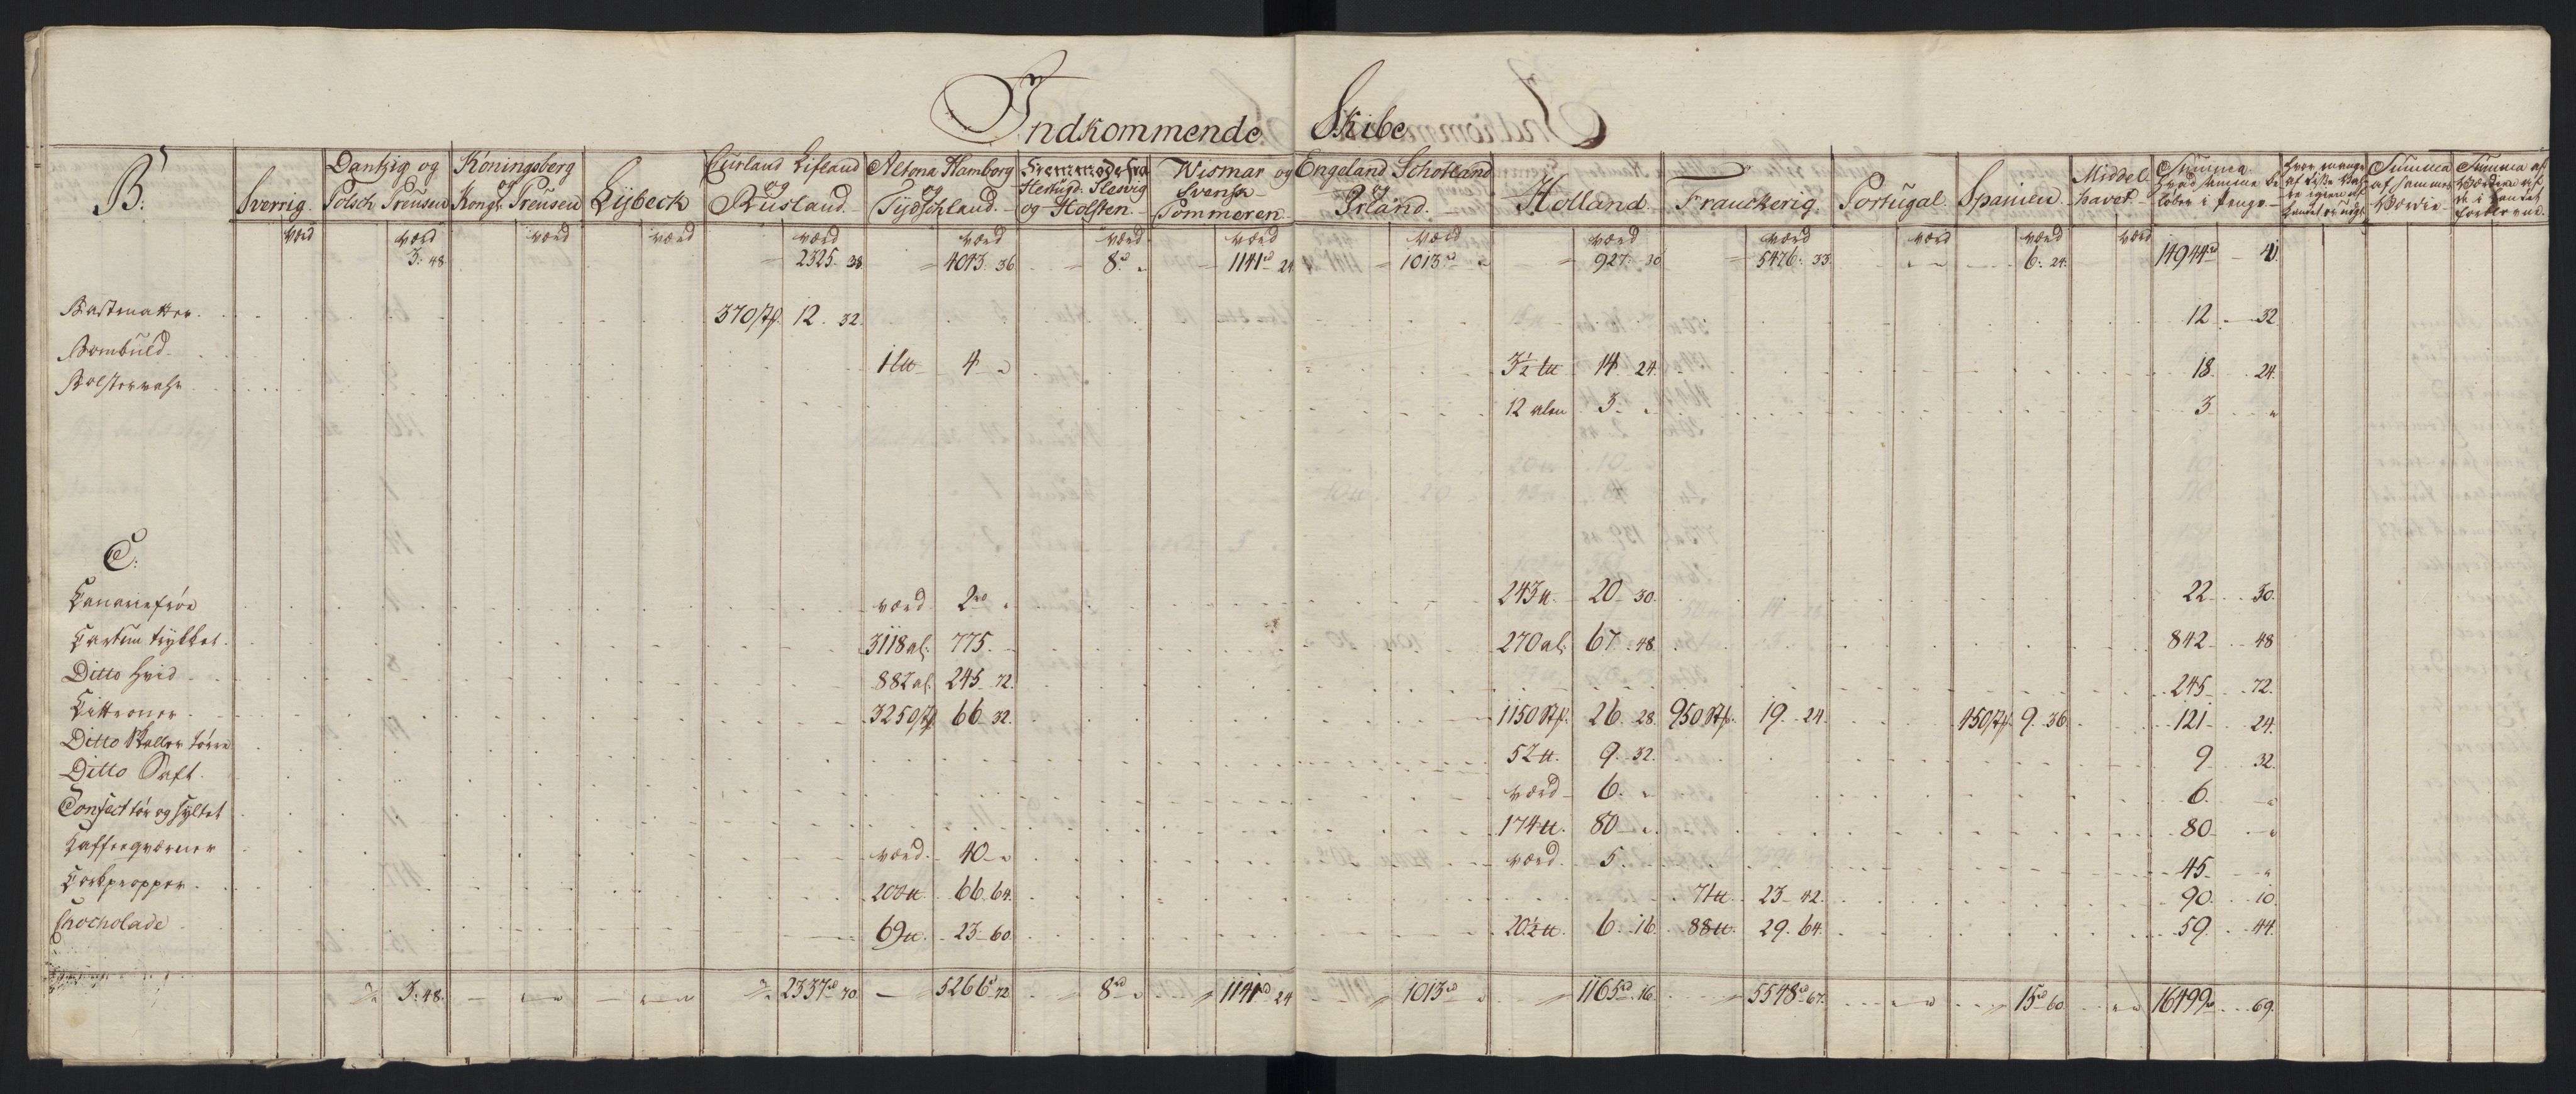 Indkommende Skibe
B: Sverrig. Dantzig og Polsch Preusen Köningsberg og Kongl: Preusen Lÿbeck Curland Lifland og Rusland. Altona Hamborg og Tydschland. Hertugd. Slesvig og Holsten. Wismar og Svensk Pommeren. Engeland Schotland og Irland. Holland. Franckerig. Portugal. Spanien. Middel havet Summa
værd værd værd værd værd værd værd værd værd værd værd værd værd værd
3: 48 2325. 38 4043. 36 8 1141 24 1013 927. 30 5476: 33 6: 24 14944
Bastmatter. 370 st 12. 32 12 32
Bombuld 1 lb 4 3½ lb 14 24. 18 24.
Bolstervahr 12 alen 3. 3
C:
Canariefröe værd 2 243 lb 20 30. 22 30.
Cartun trykket. 3118 al: 775. 270 al: 67 48 842 48
Ditto hvid 882 al: 245 72. 245 72.
Citroner 3250 st 66 32. 1150 st 26. 28 950 st 19. 24. 450 st 9. 36 121 24.
Ditto Skaller törre 52 lb 9. 32. 9 32.
Ditto Saft. værd 6. 6.
Confect tör og syltet 174 lb 80 80
Caffeqværner værd. 40 værd. 5. 45
Corkpropper. 200 lb 66. 64. 71 lb 23 42. 90. 10
Chocholade 69 lb. 23 60 20½ lb 6. 16. 88 lb 29. 64. 59. 44.
3: 48. 2337 70 5266 72 8 1141 24 1013 1165. 16. 5548 67. 15 60 16499 69.